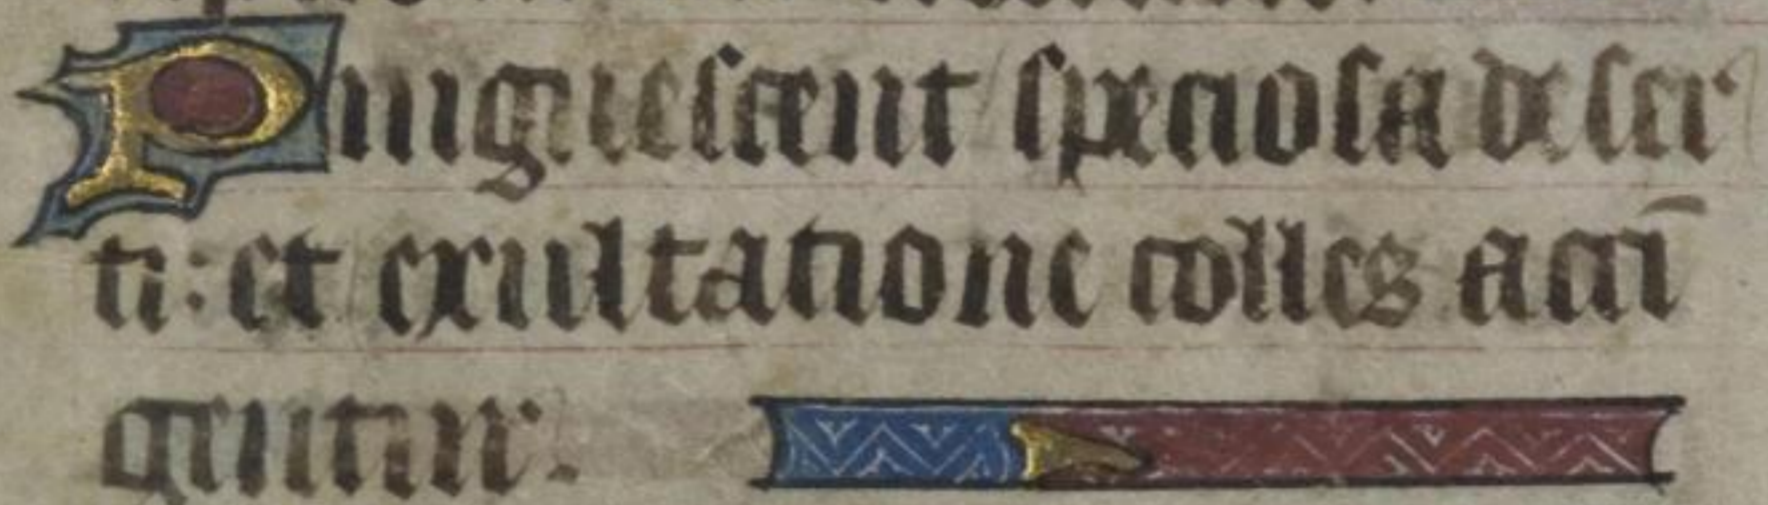 Pinguescent speciosa deser
ti: et exultatione colles acci̅
gentur.